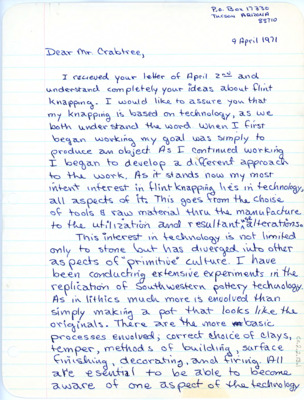 P.O. Box 17330
Tucson Arizona
85710
9 April 1971
Dear Mr. Crabtree,
I recieved your letter of April 2nd and
understand completely your ideas about flint
knapping. I would like to assure you that
my knapping is based on technology, as we
both understand the word. When I first
began working my goal was simply to
produce an object. As I continued working
I began to develop a different approach
to the work. As it stands now my most
intent interest in flint knapping lies in technology,
all aspects of it. This goes from the choise
of tools & raw material thru the manufacture
to the utilization and resultant use alterations.
This interest in technology is not limited
only to stone but has diverged into other
aspects of "primitive" culture. I have
been conducting extensive experiments in the
replication of Southwestern pottery technology.
As in lithics much more is envolved than
simply making a pot that looks like the
originals. There are the more basic
processes envolved; correct choice of clays,
temper, methods of building, surface
finishing, decorating, and firing. All
are esential to be able to become
aware of one aspect of the technology